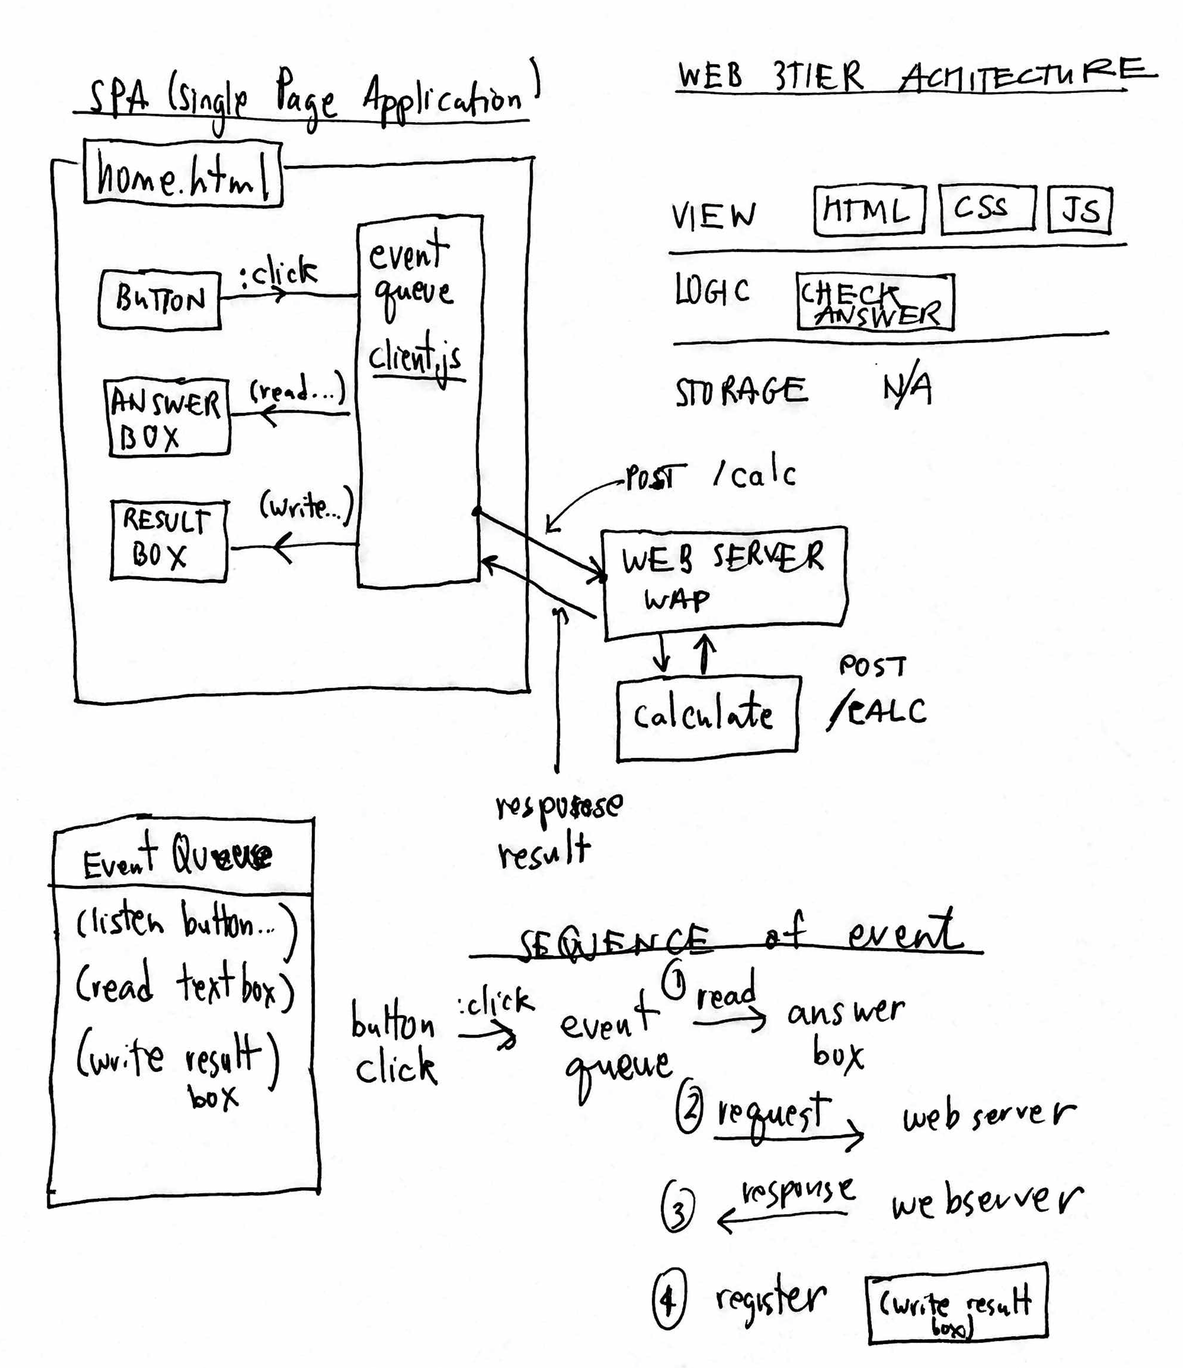 SPA (Single Page Application)
WEB 3TIER ACHITECTURE
home.html
BUTTON
:click
event
queue
client.js
ANSWER
BOX
(read...)
RESULT
BOX
(write...)
VIEW
HTML
CSS
JS
LOGIC
CHECK
ANSWER
STORAGE
N/A
POST /calc
WEB SERVER
WAP
calculate
POST
/CALC
response
result
Event Queue
(listen button...)
(read textbox)
(write result)
box
SEQUENCE of event
button
click
:click
event
queue
① read
answer
box
② request
web server
③ response
webserver
④ register
(write result
box)